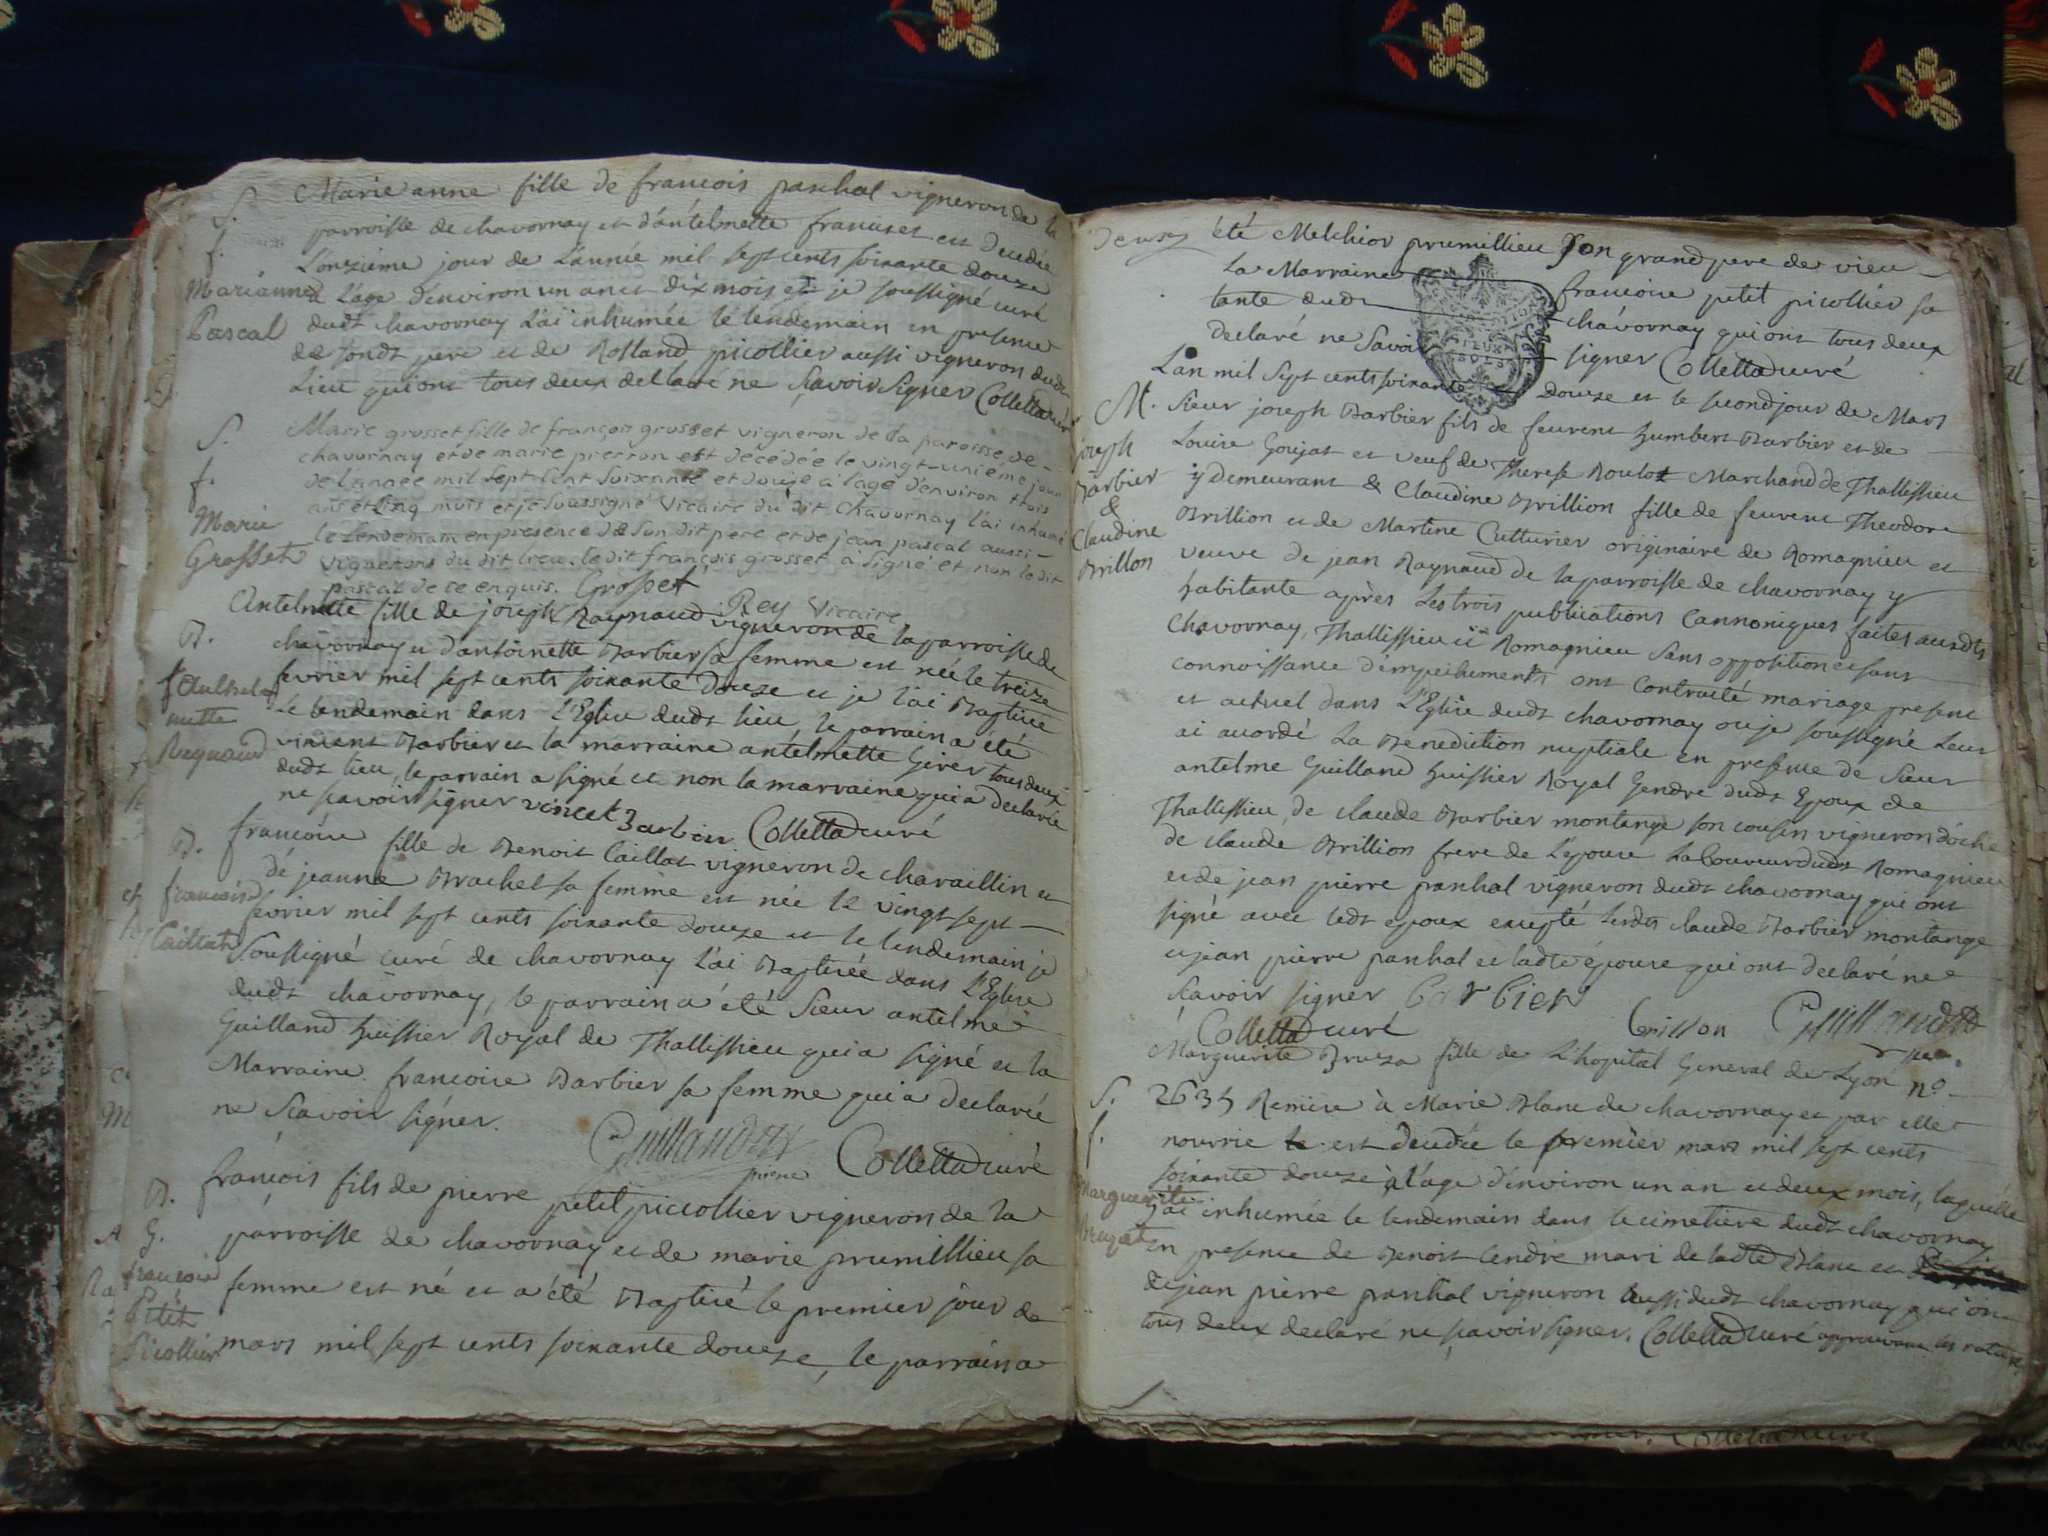 Marie anne fille de francois paschal vigneron de la
S. parroisse de chavornay et d'antelmette francoz est decedée
f. L'onzieme jour de L'année mil sept cents soixante douze
Marianne à L'age d'environ un an et dix mois et je soussigné curé
Pascal dudt chavornay L'ai inhumée le lendemain en presence
de sondt pere et de Rolland picollier aussi vigneron dudt
Lieu qui ont tous deux declaré ne sçavoir signer Collettaz curé
S. Marie grosset fille de françois grosset vigneron de la paroisse de
chavornay et de marie perron est décédée le vingt-unième jour
f. de l'anaée mil sept cent soixante et douze à l'age d'environ trois
Marie ans et cinq mois et je soussigné Vicaire du dit Chavornay l'ai inhumé
Grosset le lendemain en presence de son dit pere et de jean pascal aussi
vignerons du dit lieu. le dit françois grosset a signé et non le dit
pascal de ce enquis. Grosset
Rey Vicaire
Antelmette fille de joseph Raynaud vigneron de la parroisse de
B. chavornay et d'antoinette Barbier sa femme est née le treize
fevrier mil sept cents soixante douze et je l'ai Baptisée
Le lendemain dans L'Eglise dudt lieu, le parrain a été
Reynaud vincent Barbier et la marraine antelmette Girer tous deux
dudt lieu, le parrain a signé et non la marraine qui a declarée
ne sçavoir signer vincet Barbier Collettaz curé
B. francoise fille de Benoit Caillat vigneron de charaillin et
de jeanne Brachet sa femme est née le vingt sept
francoise fevrier mil sept cents soixante douze et le lendemain je
Caillat soussigné curé de chavornay L'ai Baptisée dans L'Eglise
dudt chavornay, le parrain a été Sieur antelme
Guilland huissier Royal de Thallissieu qui a signé et la
Marraine francoise Barbier sa femme qui a declarée
ne scavoir signer.
Guilland Collettaz curé
B. francois fils de pierre petit piccollier vigneron de la
G. parroisse de chavornay et de marie prumillieu sa
francois femme est né et a été Baptisé le premier jour de
Petit
Picollier mars mil sept cents soixante douze, le parrain a
été Melchior prumillieu son grand pere de vieu
La Marraine francoise petit picollier sa
tante dudt chavornay qui ont tous deux
declaré ne Savoir signer Collettaz curé
L'an mil Sept cents soixante Douze et le second jour de Mars
M. Sieur joseph Barbier fils de feu vivent humbert Barbier et de
joseph Louise Goujat et veuf de Therese Roulot Marchand de Thallissieu
Barbier y demeurant & Claudine Brillion fille de feu vivent Theodore
& Brillion et de Martine Cutturier originaire de Romagnieu et
Claudine veuve de jean Raynaud de la parroisse de chavornay y
Brillon habitante après Les trois publications Cannoniques faites auxdts
Chavornay, Thallissieu et Romagnieu sans opposition et sans
connoissance d'empechements ont contracté mariage present
et actuel dans L'Eglise dudt chavornay ou je soussigné Leur
ai acordé La Benediction nuptiale en presence de Sieur
antelme Guilland huissier Royal Gendre dudt Epoux de
Thallissieu, de claude Barbier montange son cousin vigneron d'oche
de claude Brillion frere de L'epouse Laboureur dudt Romagnieu
et de jean pierre paschal vigneron dudt chavornay qui ont
signé avec ledt epoux excepté lesdts claude Barbier montange
et jean pierre paschal et ladte épouse qui ont declaré ne
scavoir signer barbier
Collettaz curé brillon Guilland
Marguerite Bruza fille de L'hopital General de Lyon no.
S. 2635 Remise à Marie Blanc de chavornay et par elle
f. nourrie le est decedée le premier mars mil sept cents
soixante douze à l'age d'environ un an et deux mois, laquelle
Marguerite j'ai inhumée le lendemain dans le cimetiere dudt chavornay
en presence de Benoit Cendre mari de ladte Blanc et
de jean pierre paschal vigneron aussi dudt chavornay qui ont
tous deux declaré ne sçavoir signer. Collettaz curé approuvant les ratures